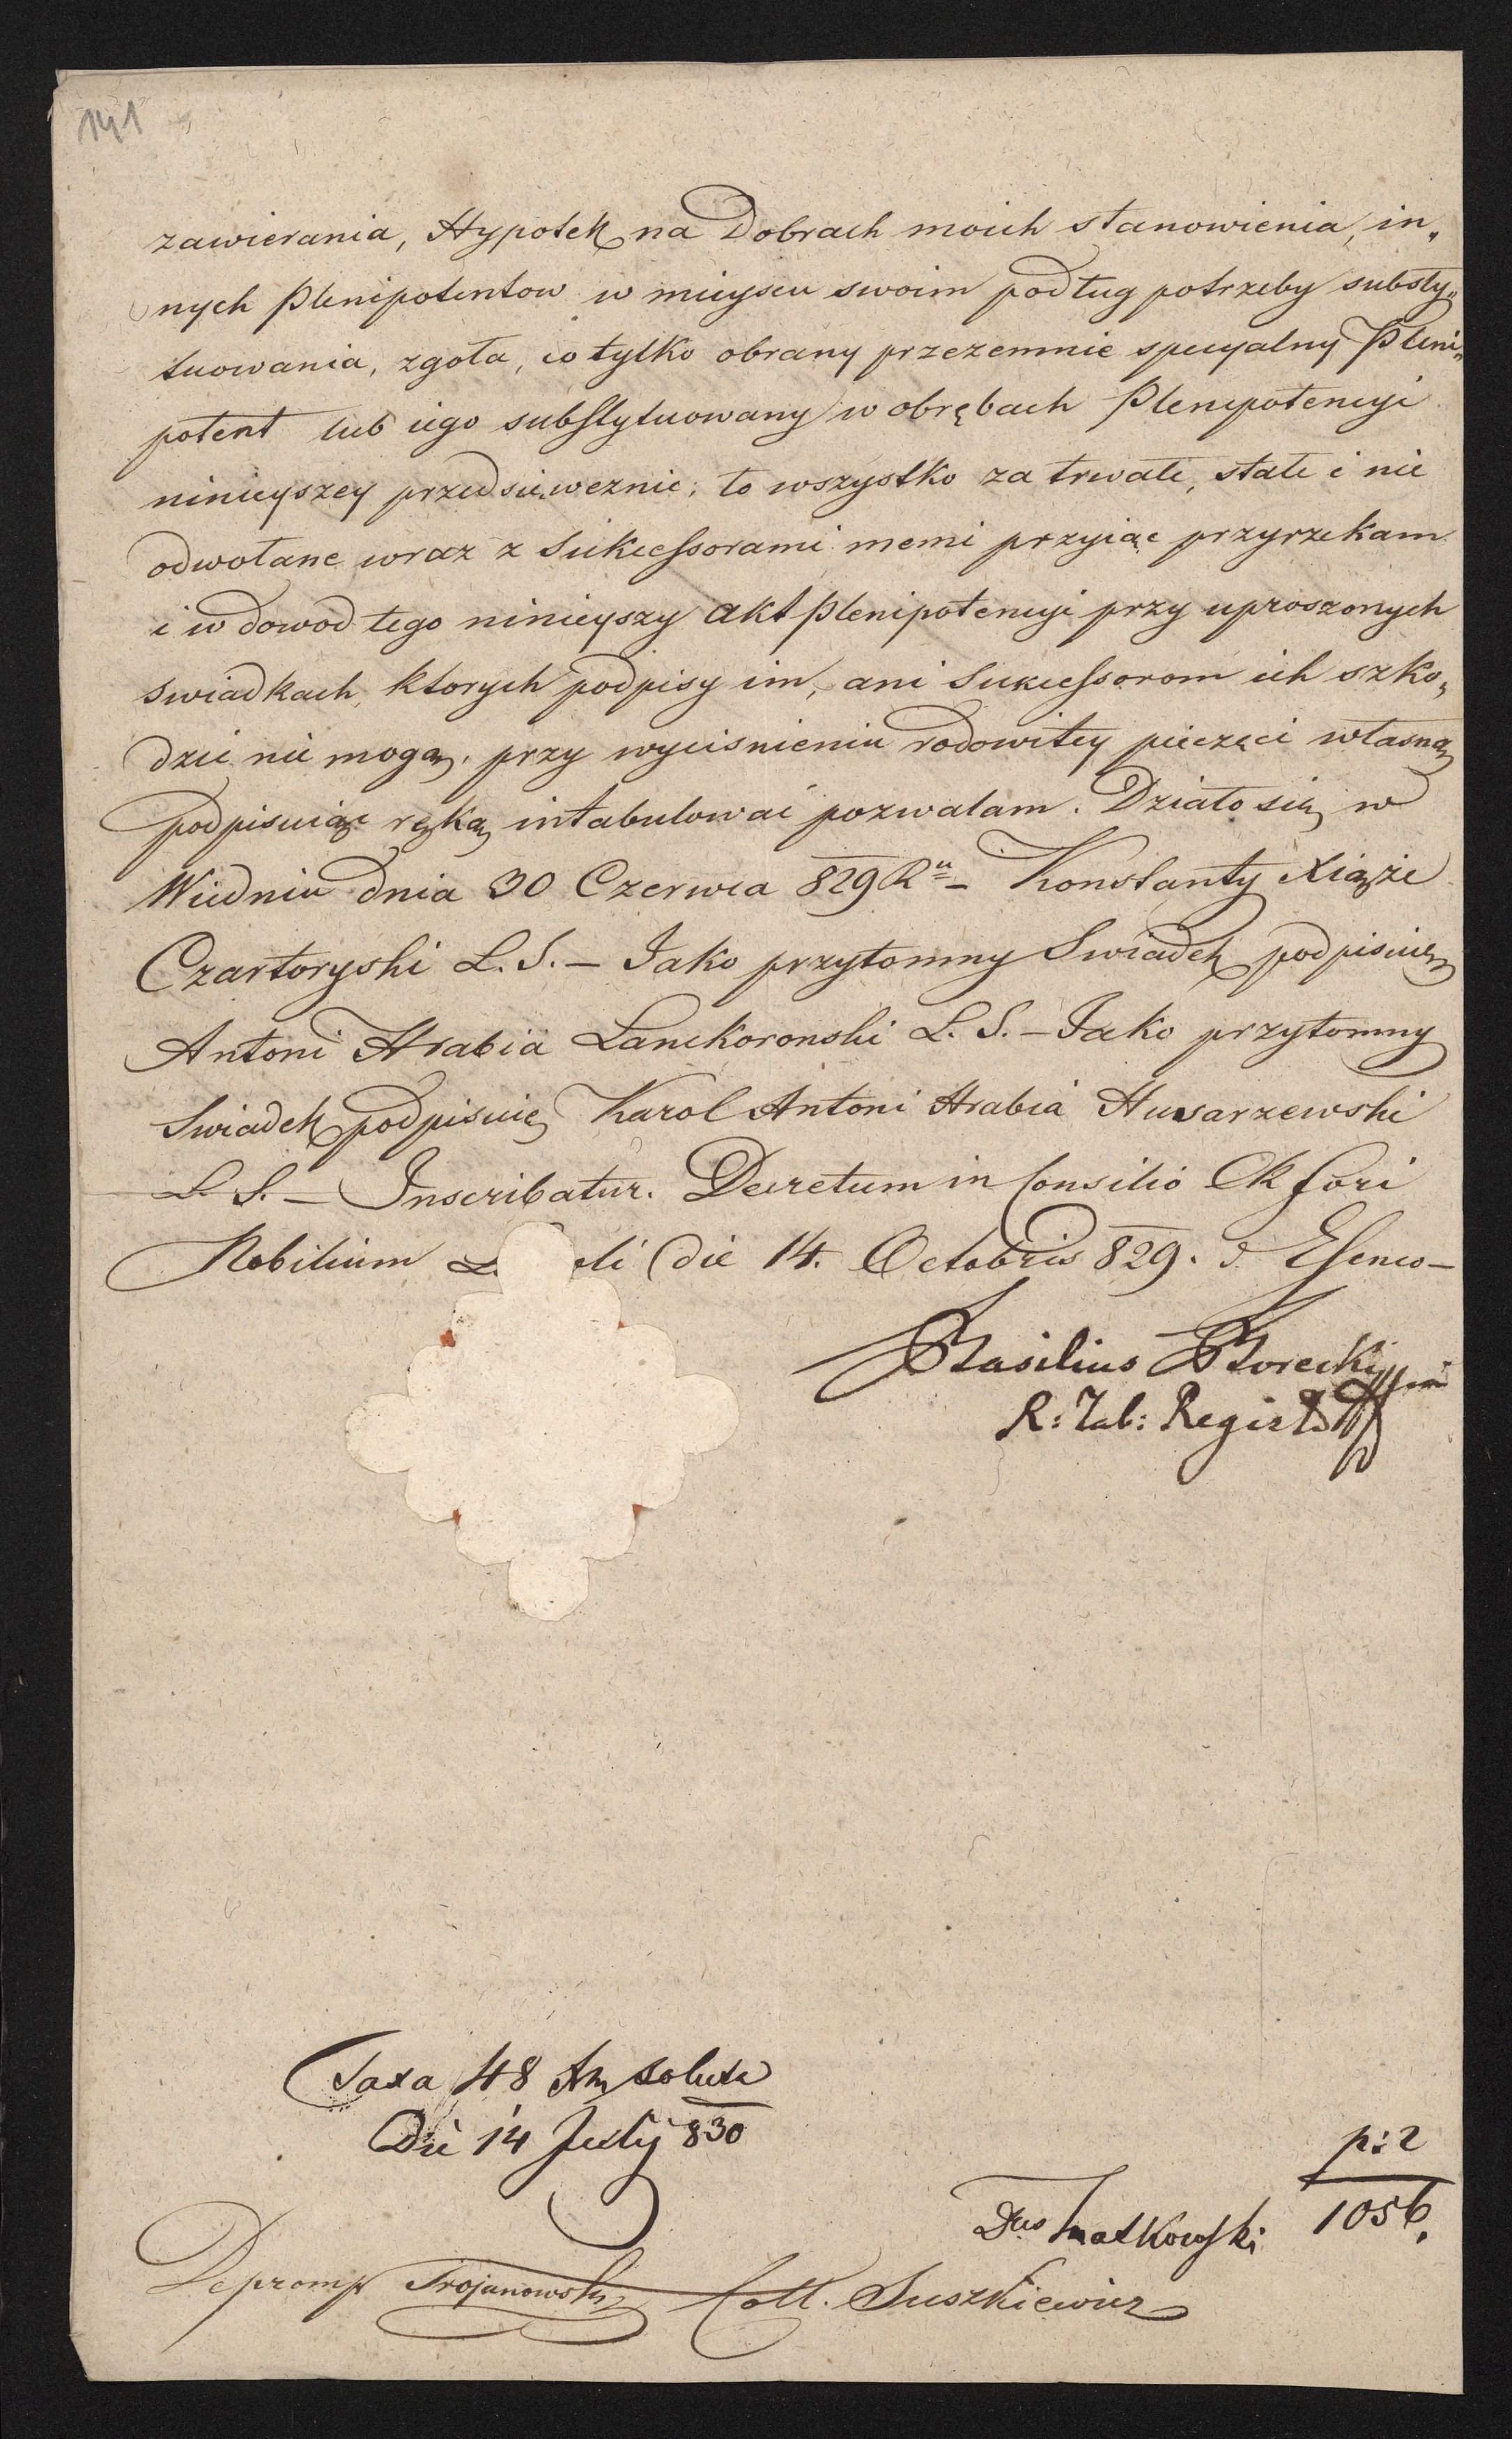 141
zawierania, Hypotek na Dobrach moich stanowienia, in„
nych Plenipotentow w mieyscu swoim podług potrzeby substy„
tuowania, zgoła, co tylko obrany przezemnie specyalny Pleni„
potent lub iego substytuowany w obrębach Plenipotencyi
ninieyszey przedsięweznie; to wszystko za trwałe, stałe i nie
odwołane wraz z Sukcessorami memi przyiąc przyrzekam
i w dowod tego ninieyszy akt Plenipotencyi przy uproszonych
swiadkach, ktorych podpisy im, ani Sukcessorom ich szko„
dzic nie mogą, przy wycisnieniu rodowitey pieczęci własną
podpisuiąc ręką intabulowac pozwalam. Działo się w
Wiedniu dnia 30 Czerwca 829 Ru – Konstanty Xiąże
Czartoryski L. S. – Jako przytomny Swiadek podpisuię
Antoni Hrabia Lanckoronski L. S. – Jako przytomny
Swiadek podpisuię Karol Antoni Hrabia Husarzewski
L. S. – Inscribatur. Decretum in Consilio CR fori
Nobilium die 14. Octobris 829.
Basilius Borecki
R: Tab: Regist
Taxa 48 soluta
Die 14 July 830
p: 2
1056.
Depromp Trojanowski Coll. Suszkiewicz